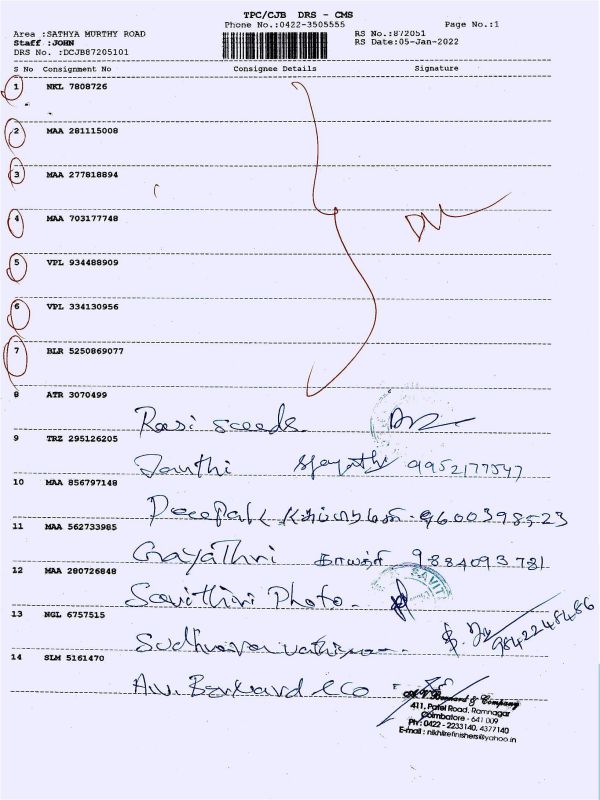 TPC/CJB DRS - CMS
Phone No.:0422-3505555
Page No.:1
Area :SATHYA MURTHY ROAD
RS No.:872051
Staff :JOHN
RS Date:05-Jan-2022
DRS No. :DCJB87205101
S No Consignment No Consignee Details Signature
1 NKL 7808726
2 MAA 281115008
3 MAA 277818894
4 MAA 703177748
5 VPL 934488909
6 VPL 334130956
7 BLR 5250869077
8 ATR 3070499
Rasi seeds
9 TRZ 295126205
Janthi 9952177547
10 MAA 856797148
9600398523
11 MAA 562733985
Gayathri காயத்ரி 9884093781
12 MAA 280726848
Savithiri Photo SAVIT
13 NGL 6757515
9842248486
14 SLM 5161470
A.V. Bernard & Co
A.V. Bernard & Company
411, Patel Road, Ramnagar
Coimbatore - 641 009
Ph : 0422 - 2233140, 4377140
E-mail : nikhilrefinishers@yahoo.in